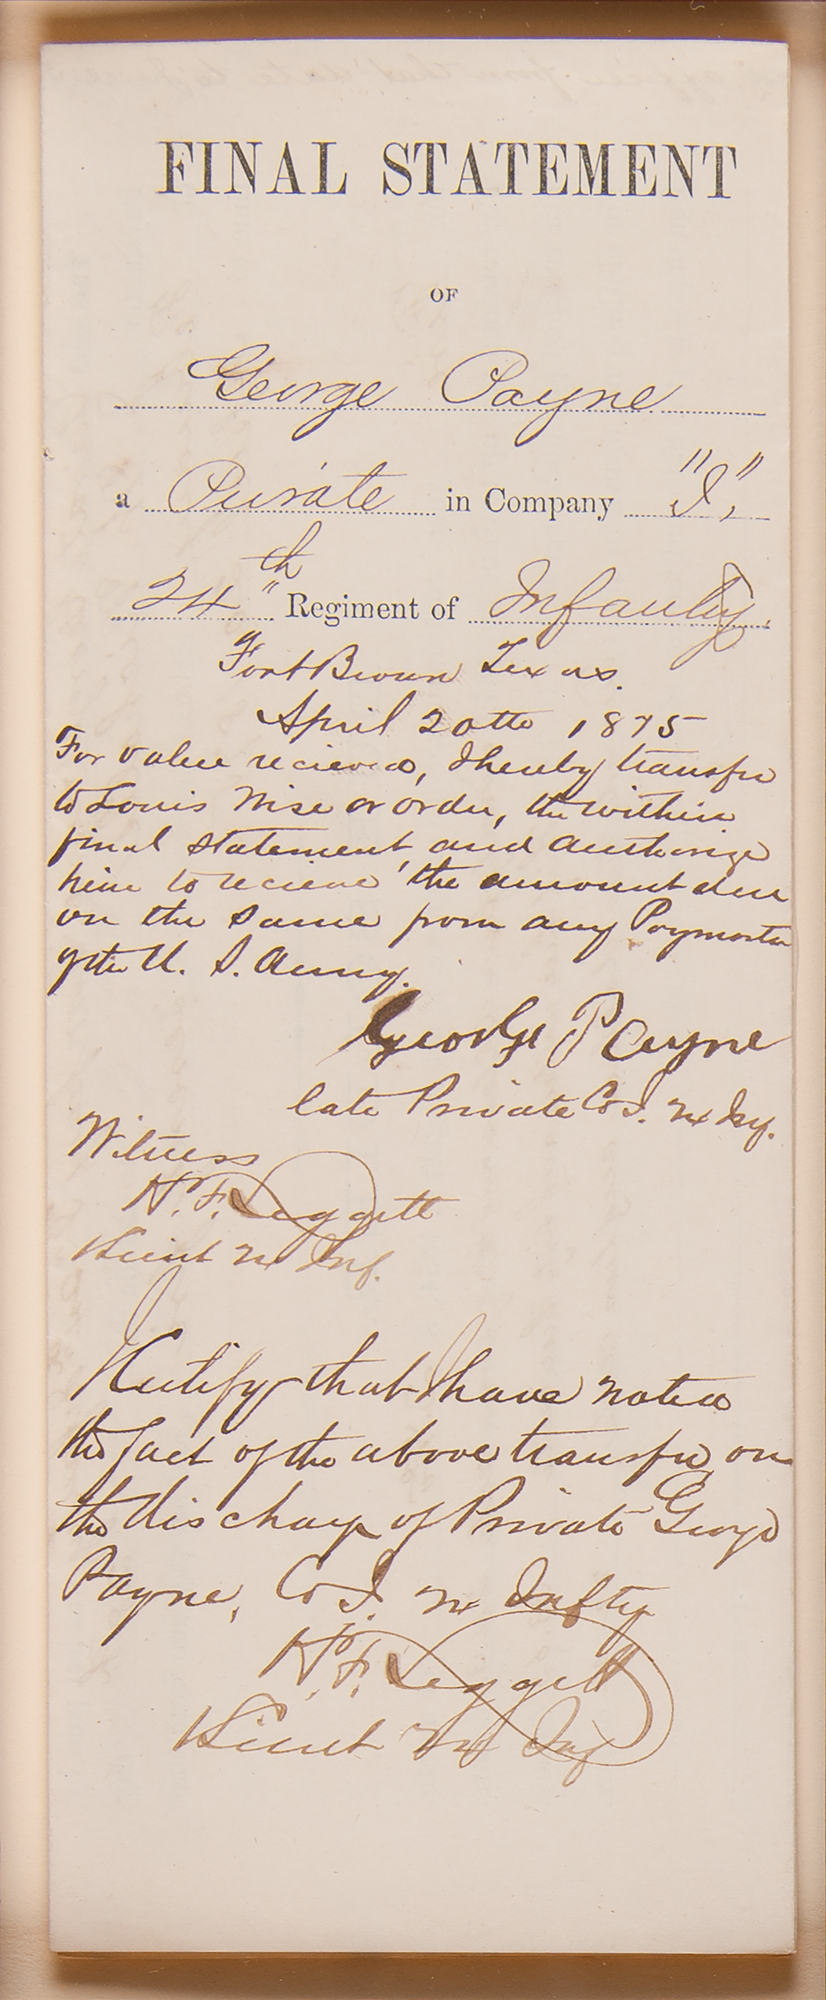 FINAL STATEMENT
OF
George Payne
a Private in Company "I"
24th Regiment of Infantry
Fort Brown Texas.
April 20th 1875
For value recieved, I hereby transfer
to Louis Wise or order, the within
final statement, and authorize
him to recieve the amount due
on the same from any Paymaster
of the U. S. Army.
George Payne
late Private Co I. 24 Iny.
Witness
H. F. Leggett
Lieut 24 Inf.
I certify that I have noted
the fact of the above transfer on
the discharge of Private George
Payne, Co I. 24 Infty
H. F. Leggett
Lieut 24 Inf